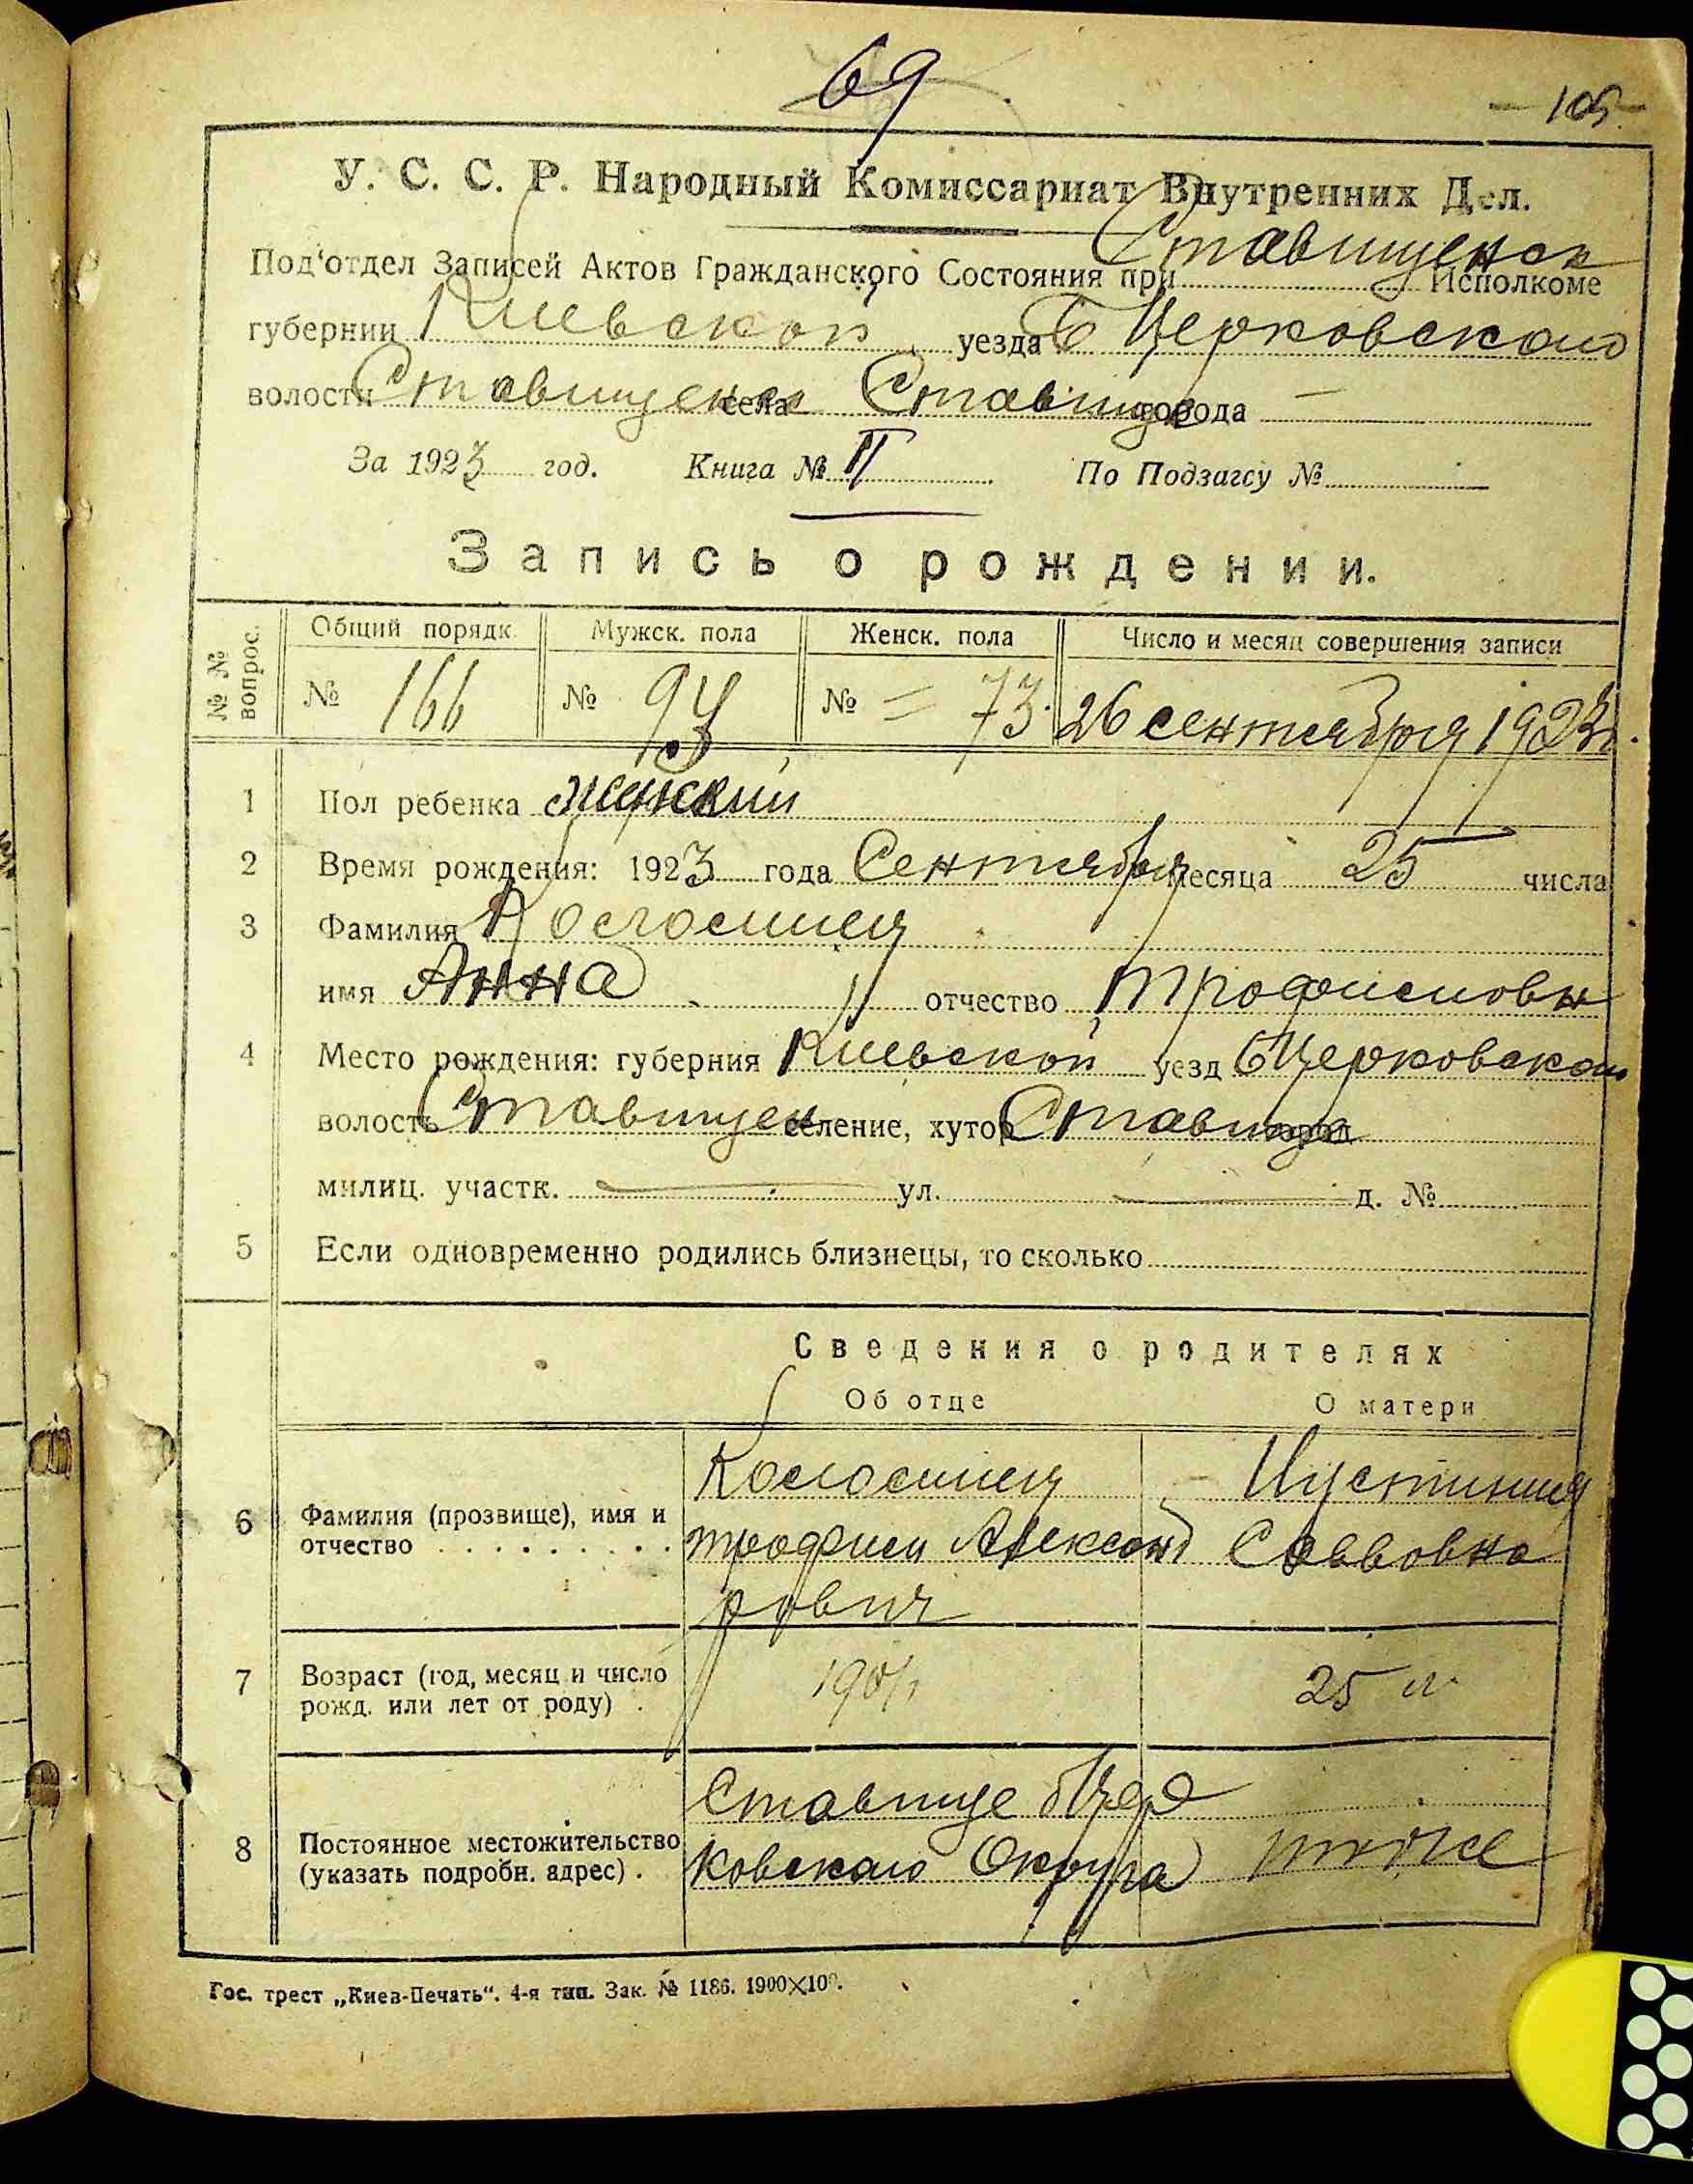 69
105
У. С. С. Р. Народный Комиссариат Внутренних Дел.
Под'отдел Записей Актов Гражданского Состояния при Ставищенск Исполкоме
губернии Киевской уезда Б Церковского
волости Ставищенск села Ставище города —
За 1923 год. Книга № II По Подзагсу №
Запись о рождении.
№ № вопрос. Общий порядк. Мужск. пола Женск. пола Число и месяц совершения записи
№ 166 № 93 № = 73. 26 сентября 1923 г.
1 Пол ребенка женский
2 Время рождения: 1923 года Сентября месяца 25 числа
3 Фамилия
имя Анна отчество Трофимовн
4 Место рождения: губерния Киевской уезд Б Церковского
волость Ставищен селение, хутор Ставище город
милиц. участк. — ул. — д. №
5 Если одновременно родились близнецы, то сколько
Сведения о родителях
Об отце О матери
6 Фамилия (прозвище), имя и отчество
Иустиния
Трофим Александ Савовна
рович
7 Возраст (год, месяц и число рожд. или лет от роду) . 25 л.
8 Постоянное местожительство (указать подробн. адрес) .
Ставище бЦер
ковского Округа тоже
Гос. трест „Киев-Печать". 4-я тип. Зак. № 1186. 1900×100.